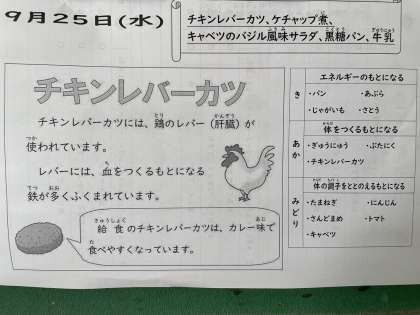 9月25日(水)
チキンレバーカツ、ケチャップ煮、
キャベツのバジル風味サラダ、黒糖パン、牛乳
チキンレバーカツ
チキンレバーカツには、鶏のレバー(肝臓)が
使われています。
レバーには、血をつくるもとになる
鉄が多くふくまれています。
給食のチキンレバーカツは、カレー味で
食べやすくなっています。
き
エネルギーのもとになる
・パン ・あぶら
・じゃがいも ・さとう
あか
体をつくるもとになる
・ぎゅうにゅう ・ぶたにく
・チキンレバーカツ
みどり
体の調子をととのえるもとになる
・たまねぎ ・にんじん
・さんどまめ ・トマト
・キャベツ